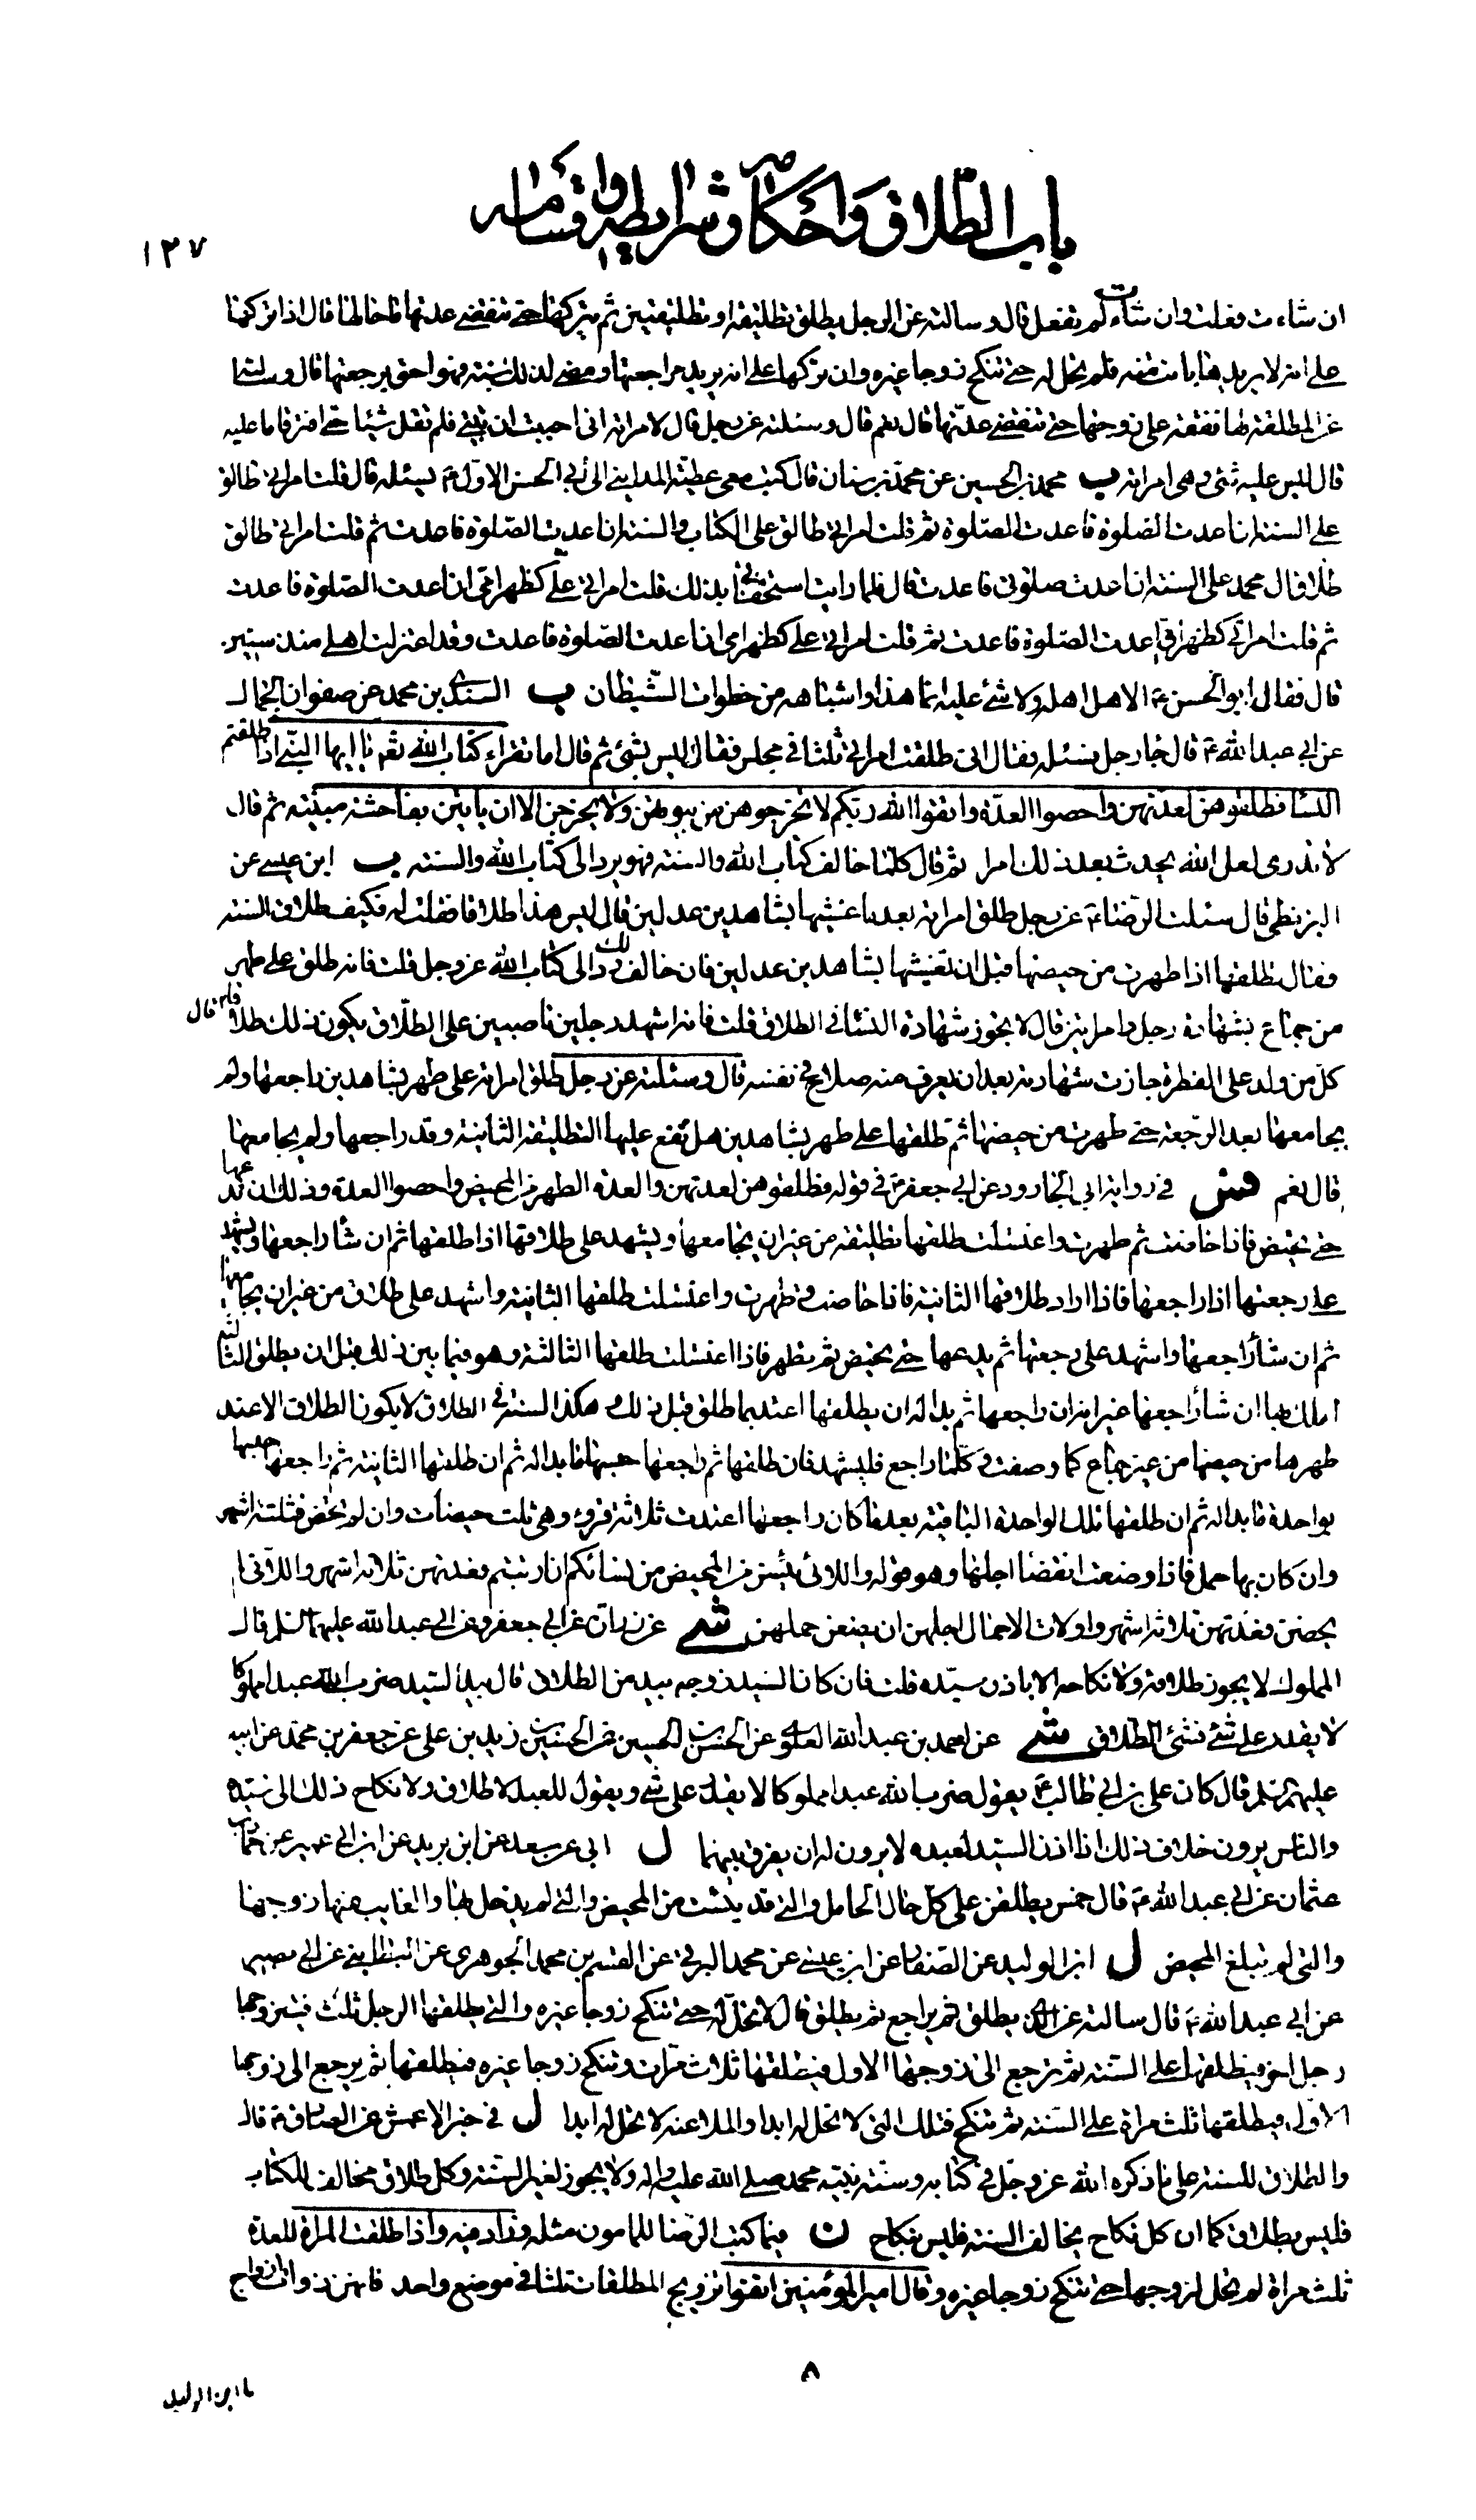 باب الطلاق واحكامه وشرايطه واقسامه
١٢٧
ان شاءت فعلت وان شاءت لم تفعل قال وسالته عن الرجل يطلق تطليقة او تطليقتين ثم يتركها حتى تنقضي عدتها ما حالها قال اذا تركها
على انه لا يريدها بانت منه فلم يحل له حتى تنكح زوجا غيره وان تركها على انه يريد مراجعتها ومضى لذلك سنة فهو احق برجعتها قال وسالته
عن المطلقة لها نفقة على زوجها حتى تنقضي عدتها قال نعم قال وسئلته عن رجل قال لامراته اني احببت ان تبيني فلم تقل شيئا حتى افترقا ما عليه
قال ليس عليه شئ وهي امراته ب محمد بن الحسين عن محمد بن سنان قال كتب معي عطية المدايني الى ابي الحسن الاول ع يسئله قال قلت امراتي طالق
على السنة ان اعدت الصلوة فاعدت الصلوة ثم قلت امراتي طالق على الكتاب والسنة ان اعدت الصلوة فاعدت ثم قلت امراتي طالق
طلاق ال محمد على السنة ان اعدت صلوتي فاعدت قال فلما رايت استخفافي بذلك قلت امراتي علي كظهر امي ان اعدت الصلوة فاعدت
ثم قلت امراتي علي كظهر امي ان اعدت الصلوة فاعدت ثم قلت امراتي علي كظهر امي ان اعدت الصلوة فاعدت وقد اعتزلت اهلي منذ سنين
قال فقال ابو الحسن ع الاهل اهله ولا شئ عليه انما هذا واشباهه من خطوات الشيطان ب السندي بن محمد عن صفوان الجمال
عن ابي عبد الله ع قال جاء رجل فسئله فقال اني طلقت امراتي ثلثا في مجلس فقال ليس بشئ ثم قال اما تقراء كتاب الله تعم يا ايها النبي اذا طلقتم
النساء فطلقوهن لعدتهن واحصوا العدة واتقوا الله ربكم لا تخرجوهن من بيوتهن ولا يخرجن الا ان ياتين بفاحشة مبينة ثم قال
لا تدري لعل الله يحدث بعد ذلك امرا ثم قال كلما خالف كتاب الله والسنة فهو يرد الى كتاب الله والسنة ب ابن عيسى عن
البزنطي قال سئلت الرضاء ع عن رجل طلق امراته بعد ما غشيها بشاهدين عدلين قال ليس هذا طلاقا فقلت له فكيف طلاق السنة
فقال يطلقها اذا طهرت من حيضها قبل ان يغشيها بشاهدين عدلين فان خالف ذلك رد الى كتاب الله عز وجل قلت فانه طلق على طهر
من جماع بشهادة رجل وامراتين قال لا يجوز شهادة النساء في الطلاق قلت فانه اشهد رجلين ناصبيين على الطلاق يكون ذلك طلاقا قال
كل من ولد على الفطرة جازت شهادته بعد ان يعرف منه صلاح في نفسه قال وسئلته عن رجل طلق امراته على طهر بشاهدين راجعها ولم
يجامعها بعد الرجعة حتى طهرت من حيضها ثم طلقها على طهر بشاهدين هل تقع عليها التطليقة الثانية وقد راجعها ولم يجامعها
قال نعم فس في رواية ابي الجارود عن ابي جعفر ع في قوله فطلقوهن لعدتهن والعدة الطهر من المحيض واحصوا العدة وذلك ان تدعها
حتى تحيض فاذا حاضت ثم طهرت واغتسلت طلقها تطليقة من غير ان يجامعها ويشهد على طلاقها اذا طلقها ثم ان شاء راجعها ويشهد
على رجعتها اذا راجعها فاذا اراد طلاقها الثانية فاذا حاضت وطهرت واغتسلت طلقها الثانية واشهد على طلاق من غير ان يجامعها
ثم ان شاء راجعها واشهد على رجعتها ثم يدعها حتى تحيض ثم تطهر فاذا اغتسلت طلقها الثالثة وهو فيما بين ذلك قبل ان يطلق الثالثة
املك بها ان شاء راجعها غير انه ان راجعها ثم بدا له ان يطلقها اعتد بما طلق قبل ذلك هكذا السنة في الطلاق لا يكون الطلاق الا عند
طهرها من حيضها من غير جماع كما وصفت وكلما راجع فليشهد فان طلقها ثم راجعها حبسها ما بدا له ثم ان طلقها الثانية ثم راجعها حبسها
بواحدة ما بدا له ثم ان طلقها تلك الواحدة الباقية بعد ما كان راجعها اعتدت ثلاثة قروء وهي ثلث حيضات وان لم تحض فثلثة اشهر
وان كان بها حمل فاذا وضعت انقضا اجلها وهو قوله واللائي يئسن من المحيض من نسائكم ان ارتبتم فعدتهن ثلاثة اشهر واللائي لم
يحضن فعدتهن ثلاثة اشهر واولات الاحمال اجلهن ان يضعن حملهن شى عن زرارة عن ابي جعفر وعن ابي عبد الله عليهما السلم قال
المملوك لا يجوز طلاقه ولا نكاحه الا باذن سيده قلت فان كان السيد زوجه بيد من الطلاق قال بيد السيد ضرب الله عبدا مملوكا
لا يقدر على شئ فشئ الطلاق شى عن احمد بن عبد الله العلوي عن الحسن بن الحسين عن الحسين بن زيد بن علي عن جعفر بن محمد عن ابيه
عليهم السلم قال كان علي بن ابي طالب ع يقول ضرب الله عبدا مملوكا لا يقدر على شئ ويقول للعبد لا طلاق ولا نكاح ذلك الى سيده
والناس يرون خلاف ذلك اذا اذن السيد لعبده لا يرون له ان يفرق بينهما ل ابي عن سعد عن ابن يزيد عن ابن ابي عمير عن حماد بن
عثمان عن ابي عبد الله ع قال خمس يطلقن على كل حال الحامل والتي قد يئست من المحيض والتي لم يدخل بها والغايب عنها زوجها
والتي لم تبلغ المحيض ل ابن الوليد عن الصفار عن ابن عيسى عن محمد البرقي عن القسم بن محمد الجوهري عن البطايني عن ابي بصير
عن ابي عبد الله ع قال سالته عن الذي يطلق ثم يراجع ثم يطلق قال لا تحل له حتى تنكح زوجا غيره والتي يطلقها الرجل ثلث فيتزوجها
رجل اخر فيطلقها على السنة ثم ترجع الى زوجها الاول فيطلقها ثلاث مرات وتنكح زوجا غيره فيطلقها ثم يرجع الى زوجها
الاول فيطلقها ثلث مراة على السنة ثم تنكح فتلك التي لا تحل له ابدا والملاعنة لا تحل له ابدا ل في خبر الاعمش عن الصادق ع قال
والطلاق للسنة على ما ذكره الله عز وجل في كتابه وسنة نبيه محمد صلى الله عليه واله ولا يجوز لغير السنة وكل طلاق مخالف للكتاب
فليس بطلاق كما ان كل نكاح يخالف السنة فليس بنكاح ن فيما كتب الرضا للمامون مثله وزاد فيه واذا طلقت المراة للعدة
ثلث مراة لم تحل لزوجها حتى تنكح زوجا غيره وقال امير المؤمنين اتقوا تزويج المطلقات ثلثا في موضع واحد فانهن ذوات ازواج
٨
ما ابن الوليد